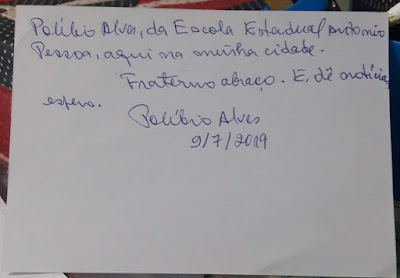 Políbio Alves, da Escola Estadual Antonio
Pessoa, aqui na minha cidade.
Fraterno abraço. E, dê notícia,
espero.
Políbio Alves
9/7/2019